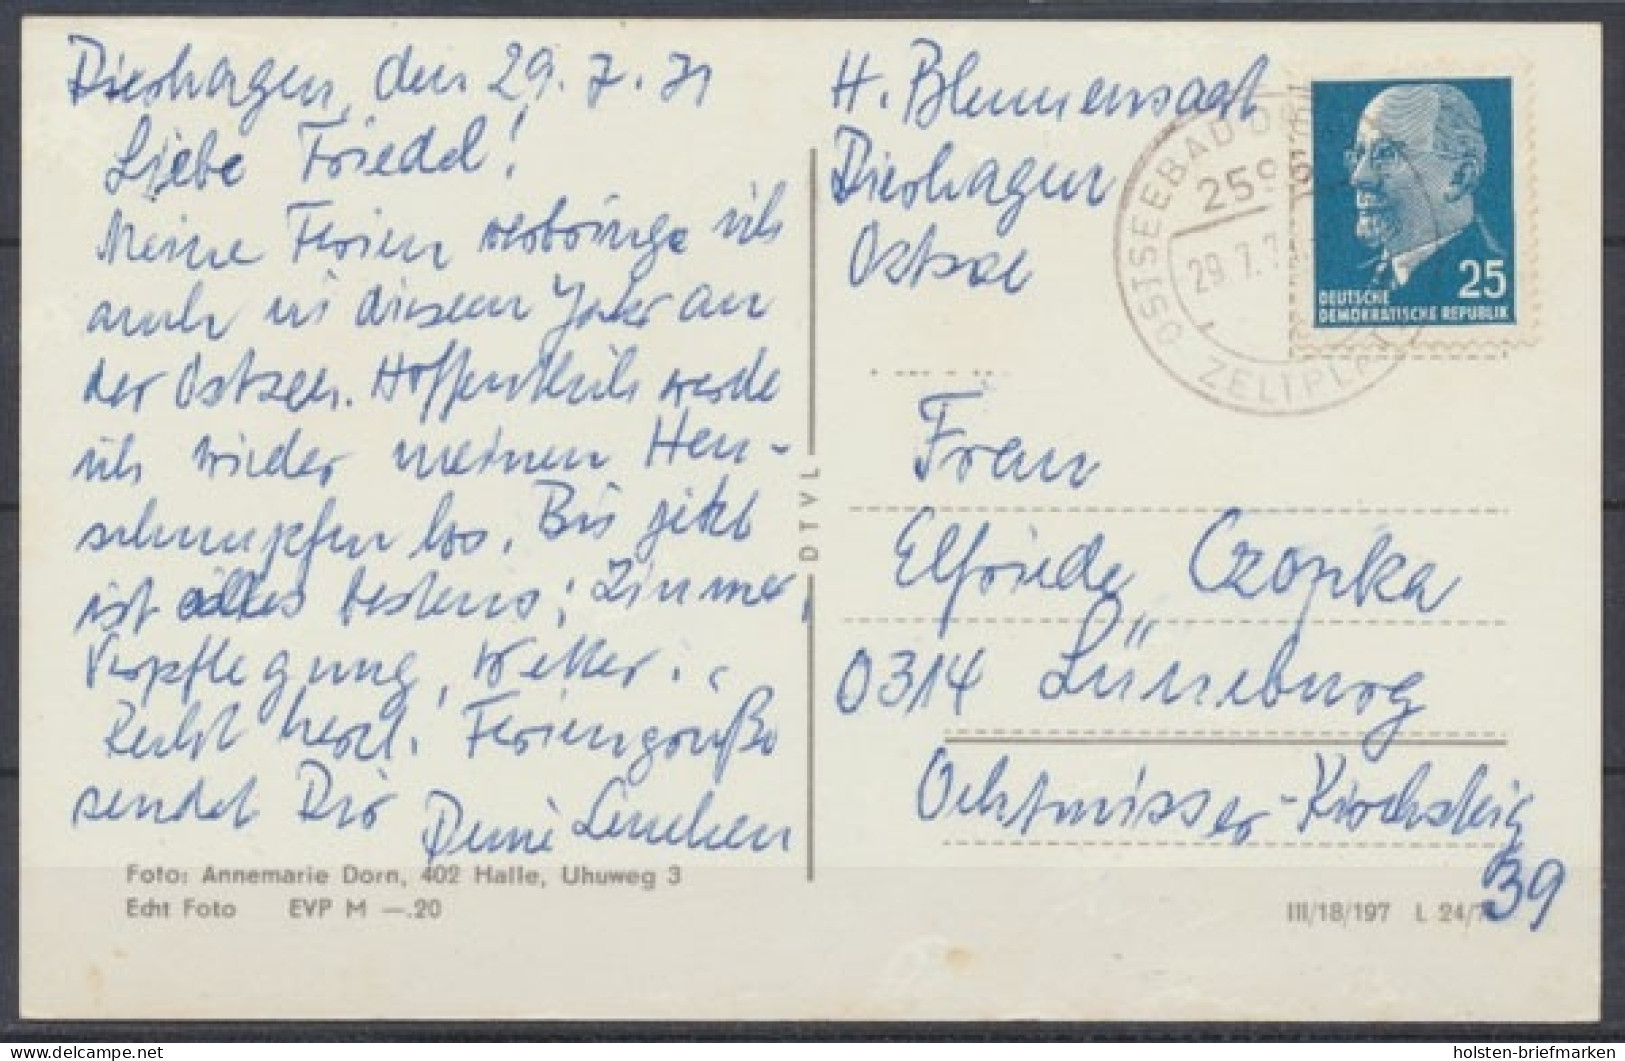 Dierhagen, den 29.7.71
Liebe Friedel!
Meine Ferien verbringe ich
auch in diesem Jahr an
der Ostsee. Hoffentlich werde
ich wieder meinen Heu-
schnupfen los. Bis jetzt
ist alles bestens; Zimmer,
Verpflegung, Wetter...
Recht herzl. Feriengrüße
sendet Dir Deine Lenchen
Foto: Annemarie Dorn, 402 Halle, Uhuweg 3
Echt Foto EVP M —.20
DTVL
H. Blumensaat
Dierhagen
Ostsee
OSTSEEBAD
259
29.7.7
ZELTPLAT
25
DEUTSCHE
DEMOKRATISCHE REPUBLIK
Frau
Elfriede Czopka
0314 Lüneburg
Ochtmisser-Kirchsteig
39
III/18/197 L 24/7
holsten-briefmarken